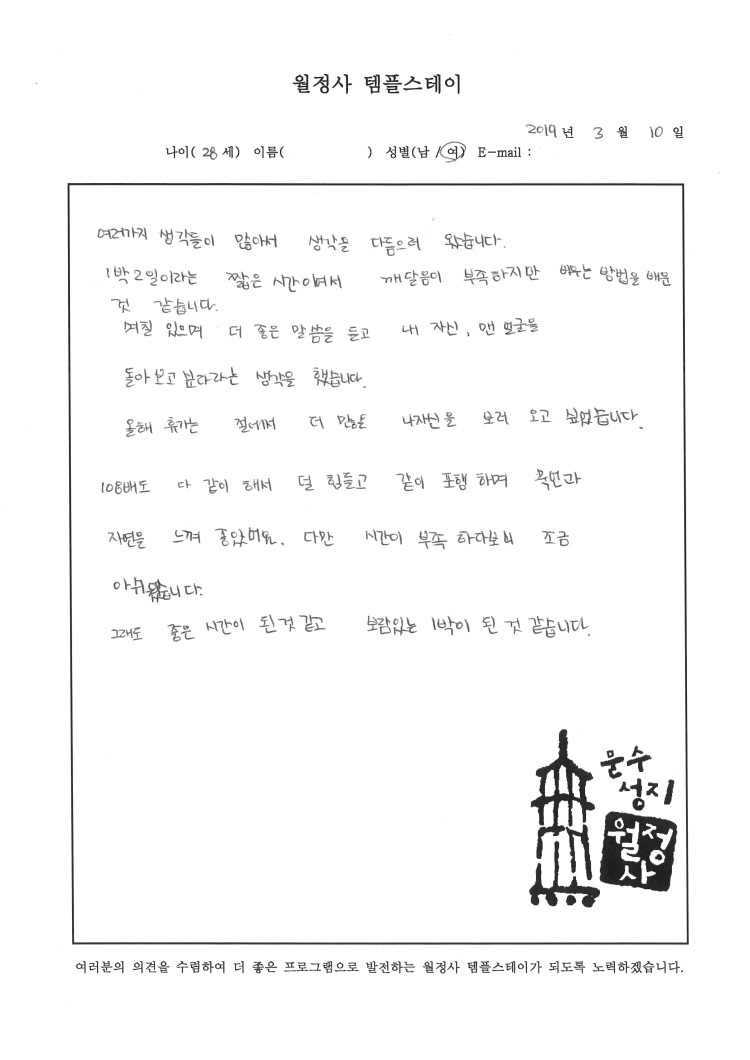 월정사 템플스테이
2019 년 3 월 10 일
나이( 28 세) 이름( ) 성별(남 /여) E-mail :
여러가지 생각들이 많아서 생각을 다듬으러 왔습니다.
1박2일이라는 짧은 시간이여서 깨달음이 부족하지만 비우는 방법을 배운
것 같습니다.
며칠 있으며 더 좋은 말씀을 듣고 내 자신, 맨 얼굴을
돌아보고 싶다라는 생각을 했습니다.
올해 휴가는 절에서 더 많은 나자신을 보러 오고 싶었습니다.
108배도 다 같이 해서 덜 힘들고 같이 포행 하며
자연을 느껴 좋았어요. 다만 시간이 부족 하다보니 조금
아쉬웠습니다.
그래도 좋은 시간이 된것 같고 보람있는 1박이 된 것 같습니다.
문수
성지
월정
사
여러분의 의견을 수렴하여 더 좋은 프로그램으로 발전하는 월정사 템플스테이가 되도록 노력하겠습니다.